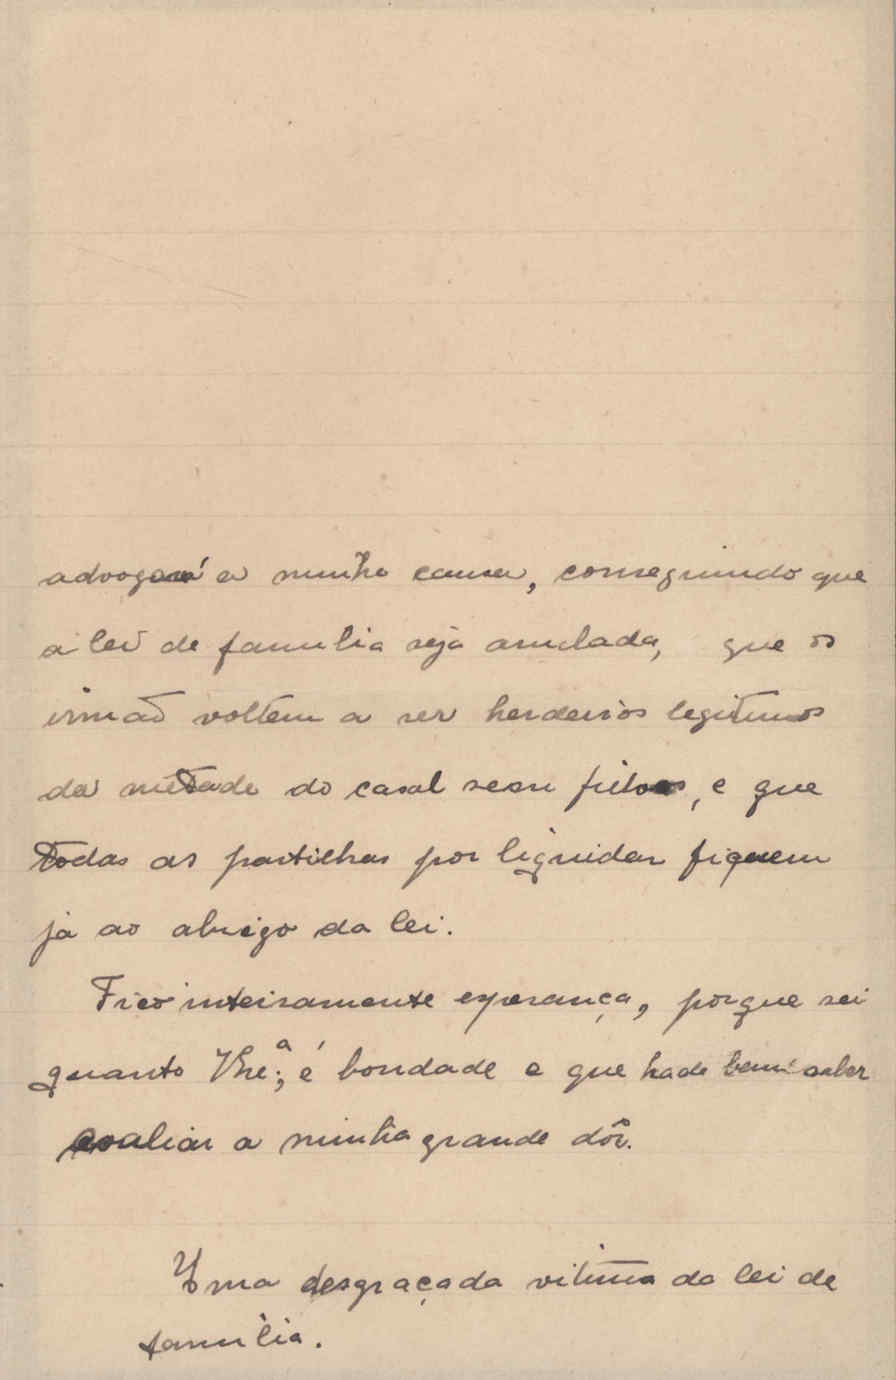 advogará a minha causa, conseguindo que
a lei de familia seja anulada, que os
irmão voltem a ser herdeiros legitimos
da metade do casal sem filhos, e que
todas as partilhas por liquidar fiquem
já ao abrigo da lei.
Fico inteiramente esperança, porque sei
quanto é bondade e que hade bem saber
avaliar a minha grande dôr.
Uma desgraçada vitima da lei de
familia.